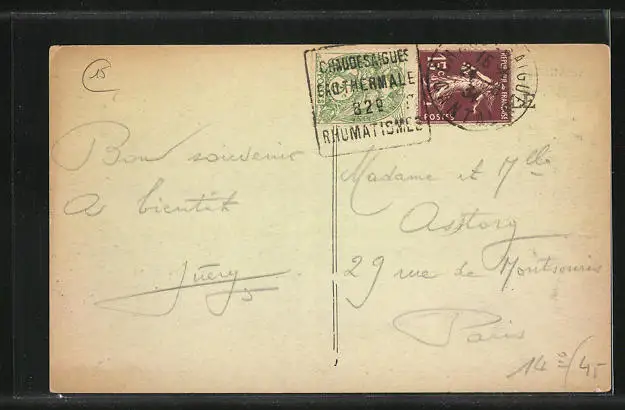 15
CHAUDESAIGUES
EAU THERMALE
82°
RHUMATISMES
15c
REPUBLIQUE FRANÇAISE
POSTES
Bon souvenir
A bientôt
Juéry
Madame et Mlle
Astorg
29 rue de Montsouris
Paris
14e/45